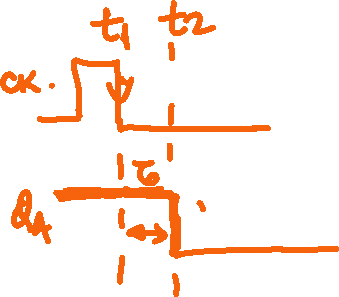 t1 t2
CK.
τ
QA